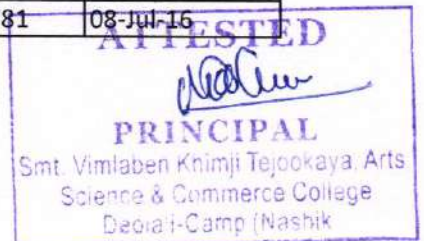 81 08-Jul-16
ATTESTED
PRINCIPAL
Smt. Vimlaben Khimji Tejookaya, Arts
Science & Commerce College
Deolali-Camp (Nashik